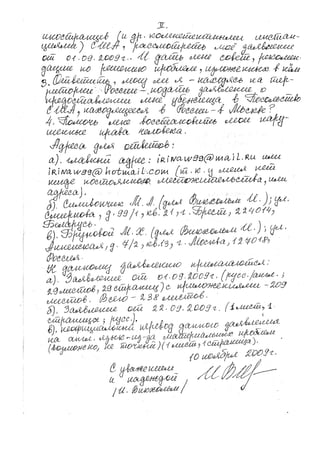 II.
иностранцев (и др. компетентными инстан-
циями) США, рассмотреть моё заявление
от 01.09.2009г. и дать мне совет, рекомен-
дацию по решению проблем, изложенных в нём
3. Ответить, могу ли я - находясь на тер-
ритории России - подать заявление о
предоставлении мне убежища в Посольство
США, находящееся в России - в Москве?
4. Помочь мне восстановить мои нару-
шенные права человека.
Адреса для ответов:
а). главный адрес: irivaw99@mail.ru или
irivaw99@hotmail.com (т.к. у меня нет
нигде постоянного местожительства, или
адреса).
б). Силивончик М. А. (для Виккольм И.); ул.
Смирнова, д. 99/1, кв. 21, г. Брест, 224014,
Беларусь.
в). Фруновой М. Х. (для Виккольм И.); ул.
Анненская, д. 4/2, кв. 13, г. Москва, 127018,
Россия.
К данному заявлению прилагаются:
а). Заявление от 01.09.2009г. (русс./англ.;
29 листов, 29 страниц) с приложениями - 209
листов. Всего - 238 листов.
б). Заявление от 22.09.2009г. (1 лист, 1
страница; русс.).
в). неофициальный перевод данного заявления
на англ. язык - из-за материальных проблем
(возможно, не точный) (1 лист, 1 страница).
10 ноября 2009г.
С уважением
и надеждой
/И. Виккольм/